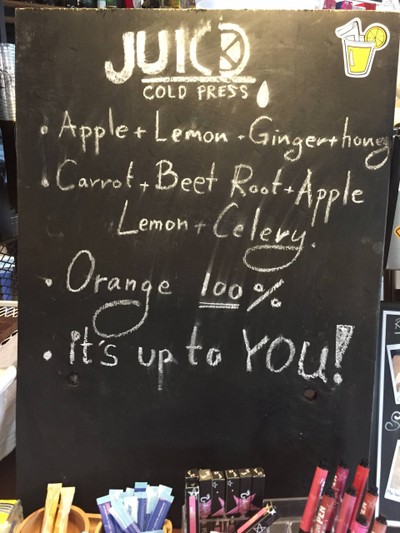 JUICD
COLD PRESS
• Apple + Lemon - Ginger + honey
• Carrot + Beet Root + Apple
Lemon + Celery.
• Orange 100%
• it's up to YOU!